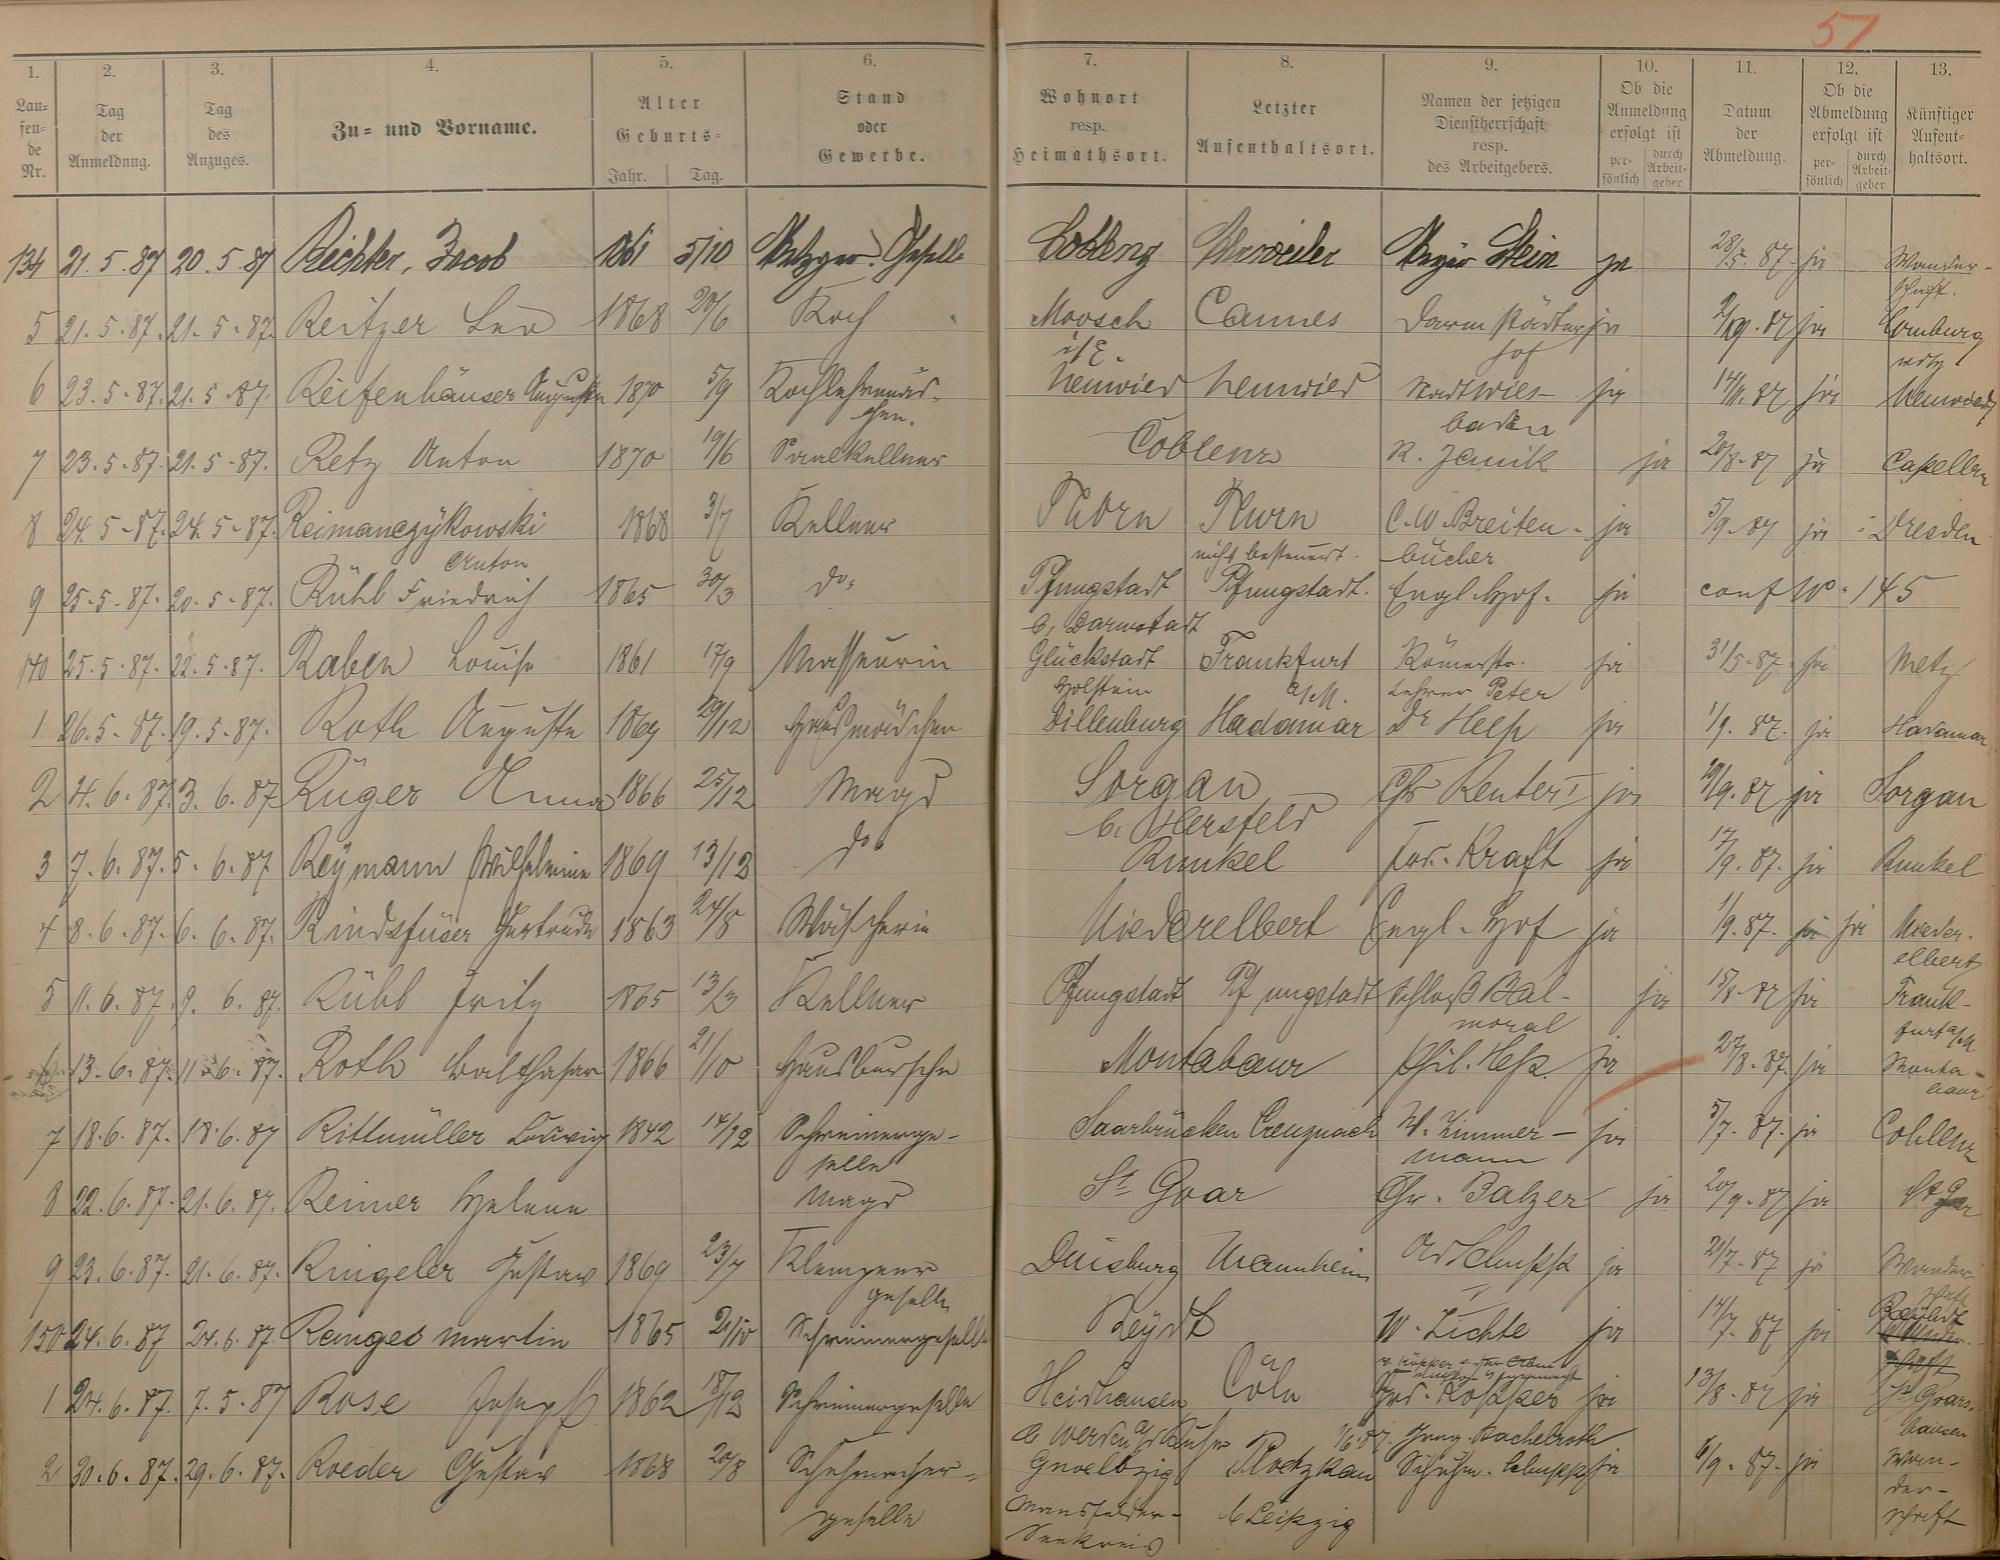 57
1. 2. 3. 4. 5. 6. 7. 8. 9. 10. 11. 12. 13.
Lau-
fen-
de
Nr.
Tag
der
Anmeldung.
Tag
des
Anzuges.
Zu- und Vorname.
Alter
Geburts-
Jahr. Tag.
Stand
oder
Gewerbe.
Wohnort
resp.
Heimathsort.
Letzter
Aufenthaltsort.
Namen der jetzigen
Dienstherrschaft
resp.
des Arbeitgebers.
Ob die
Anmeldung
erfolgt ist
per-
sönlich
durch
Arbeit-
geber
Datum
der
Abmeldung.
Ob die
Abmeldung
erfolgt ist
per-
sönlich
durch
Arbeit-
geber
Künftiger
Aufent-
haltsort.
134 21.5.87 20.5.87 Richter, Jacob 1861 5/10 Metzger Geselle Coblenz Ahrweiler Stein ja 28/5.87. ja Wander-
schaft.
5 21.5.87. 21.5.87. Reitzer Leo 1868 20/6 Koch Moosch Cannes Darmstädter ja 87 ja Homburg
i/E. hof
6 23.5.87. 21.5.87. Reifenhäuser Auguste 1870 5/9 Kochlehrmäd- Neuwied Neuwied Stadt Wies- ja 87 ja Neuwied
chen. baden
7 23.5.87. 21.5.87. Retz Anton 1870 19/6 Saalkellner Coblenz R. Janik ja 20/8.87 ja Capellen
8 24.5.87. 24.5.87. Reimanczykowski 1868 3/7 Kellner Thorn Thorn C. W. Breiten- ja 5/9.87 ja Dresden
Anton nicht besteuert. bücher
9 25.5.87. 20.5.87. Rühl Friedrich 1865 30/3 do. Pfungstadt Pfungstadt. Engl. Hof. ja conf No. 145
b. Darmstadt
140 25.5.87. 22.5.87. Raben Louise 1861 17/9 Masseurin Glückstadt Frankfurt Römerstr. ja 31/5.87. ja Metz
Holstein a/M. Lehrer Peter
1 26.5.87. 19.5.87. Roth Auguste 1869 29/12 Hausmädchen Dillenburg Hadamar Dr ja 1/9.87. ja Hadamar
2 4.6.87. 3.6.87 Rüger Anna 1866 25/12 Magd Sorgan Chr. Reuter I ja 87 ja Sorgan
b. Hersfeld
3 7.6.87. 5.6.87 Reymann Wilhelmine 1869 13/12 do Runkel Kraft ja 17/9.87. ja Runkel
4 8.6.87. 6.6.87. Rindsfüser Gertrude 1863 24/8 Wäscherin Niederelbert Engl. Hof ja 1/9.87. ja ja Nieder-
elbert
5 11.6.87. 9.6.87. Rühl Fritz 1865 13/3 Kellner Pfungstadt Pfungstadt Schloß Bal- ja 15/8.87 ja Frank-
moral furt a/M
13.6.87. 11.6.87. Roth Balthasar 1866 21/10 Hausbursche Montabaur Phil. Heß. ja 27/8.87. ja Monta-
baur
7 18.6.87. 18.6.87 Rittmüller Ludwig 1842 14/12 Schreinerge- Saarbrücken Creuznach W. Zimmer- ja 5/7.87. ja Coblenz
selle mann
8 22.6.87. 21.6.87. Reimer Helene Magd St Goar Chr. Balzer ja 20/9.87 ja St Goar
9 23.6.87. 21.6.87. Ringeler Gustav 1869 23/7 Klempner Duisburg Mannheim Ad Schupp ja 21/7.87 ja Wander-
geselle schaft
150 24.6.87 24.6.87. Ranges Martin 1865 21/10 Schreinergeselle Reydt W. Lichte ja 14/7.87 ja
1 24.6.87. 7.5.87 Rose Joseph 1862 18/12 Schreinergeselle Heidhausen Cöln Köpper ja 13/8.87 ja St Goars-
hausen
2 30.6.87. 29.6.87. Roeder Gustav 1868 20/8 Schuhmacher- Gnoelbzig Ploetzkau Schuhm. Schupp ja 6/9.87. ja Wan-
geselle Mansfelder- b Leipzig der-
Seekreis schaft